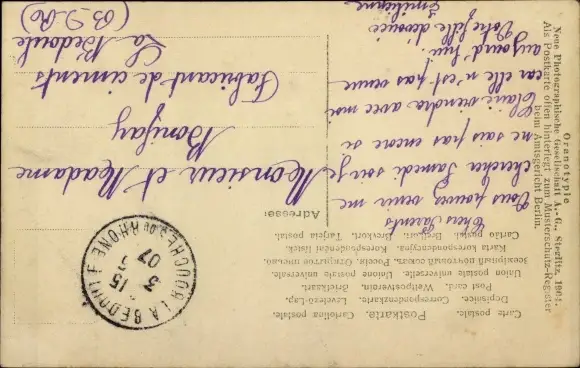 Postkarte. Cartolina postale.
Carte postale.
Dopisnice. Correspondenzkarte. Levelező-Lap.
Post card. Weltpostverein. Briefkaart.
Union postale universelle. Unione postale universale.
Karta korespondencyjna. Korespondenční lístek.
Cartão postal. Brefkort. Brevkort. Tarjeta postal.
Adresse:
Chers Parents
Vous pouvez venir me
chercher Samedi soir je
ne sais pas encore si
Claire viendra avec moi
car elle n'est pas venue
aujourd'hui
Votre fille dévouée
Emilienne
Monsieur et Madame
Bonifay
Fabricant de ciments
La Bédoule
(B. D. R)
ROQUEFORT LA BEDOULE
BCHES DU RHONE
15
3
07
Oranotypie
Neue Photographische Gesellschaft A.-G., Steglitz. 1904.
Als Postkarte offen hinterlegt zum Musterschutz-Register
beim Amtsgericht Berlin.